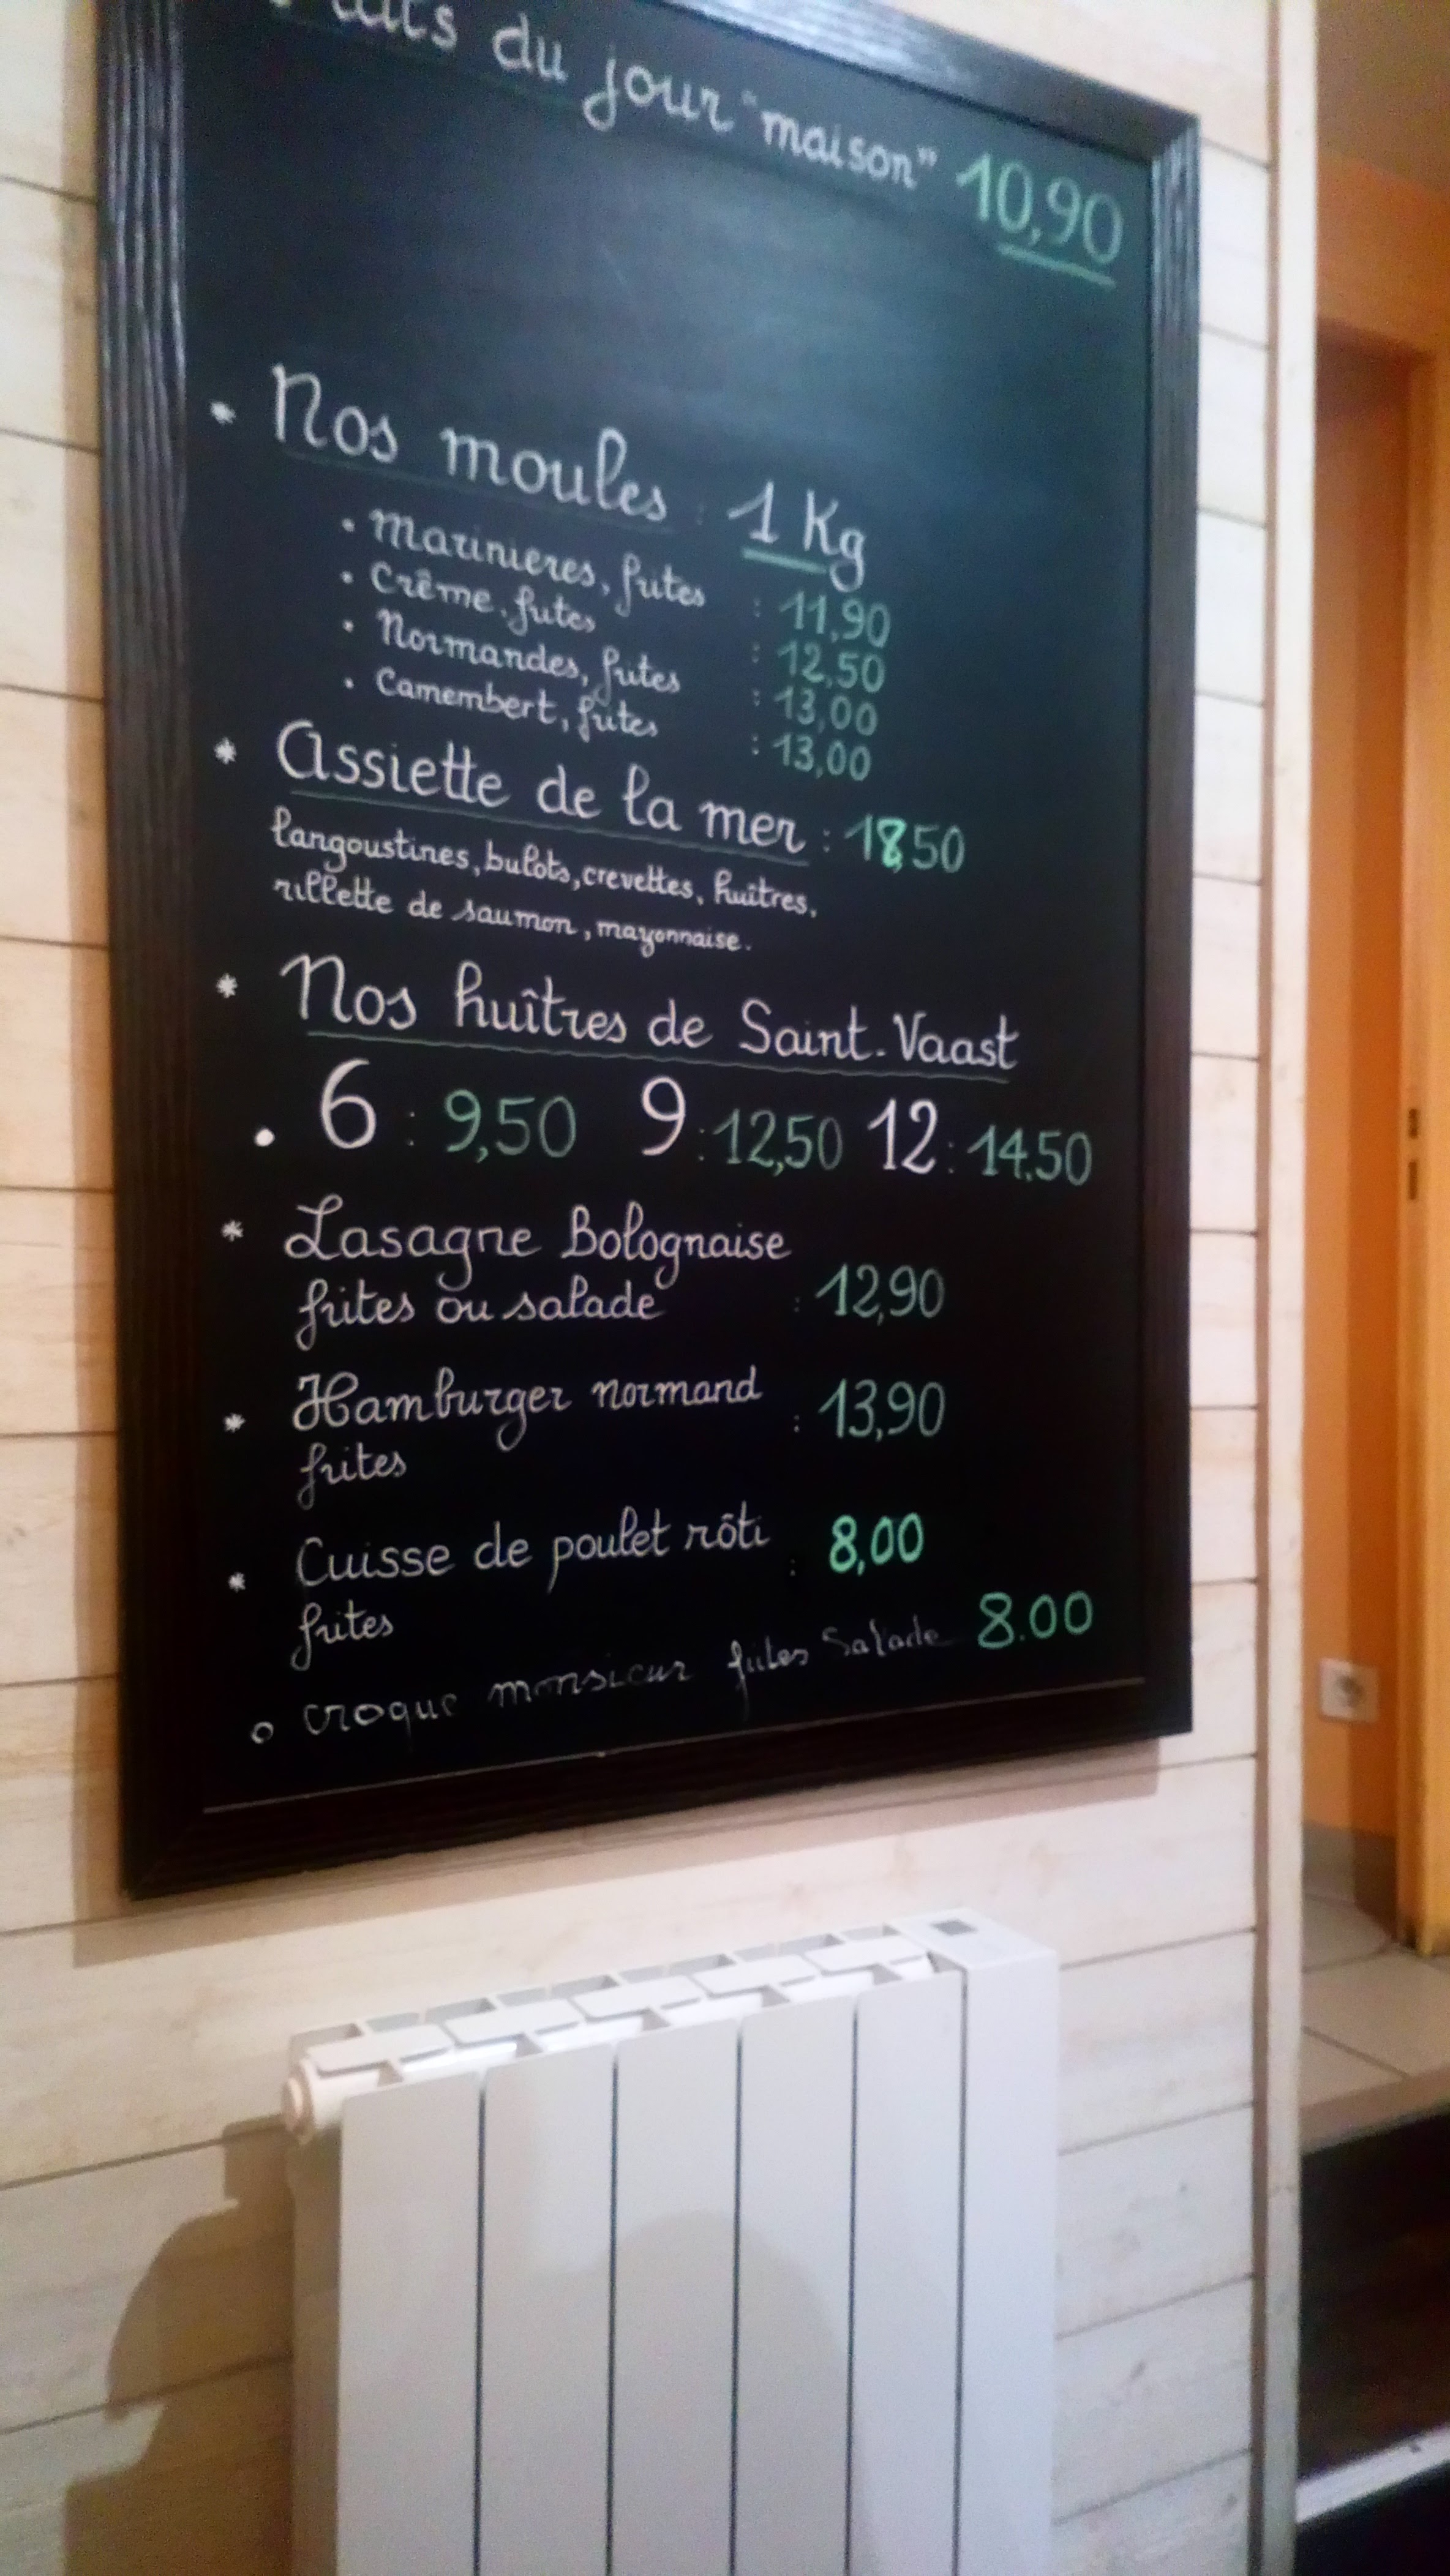 Plats du jour "maison" 10,90
* Nos moules : 1 Kg
. Marinieres, frites : 11,90
. Crême, frites : 12,50
. Normandes, frites : 13,00
. Camembert, frites : 13,00
* Assiette de la mer : 18,50
langoustines, bulots, crevettes, huîtres,
rillette de saumon, mayonnaise.
* Nos huîtres de Saint-Vaast
. 6 : 9,50 9 : 12,50 12 : 14.50
* Lasagne Bolognaise
frites ou salade : 12,90
* Hamburger normand : 13,90
frites
* Cuisse de poulet rôti : 8,00
frites
o croque monsieur frites Salade 8.00